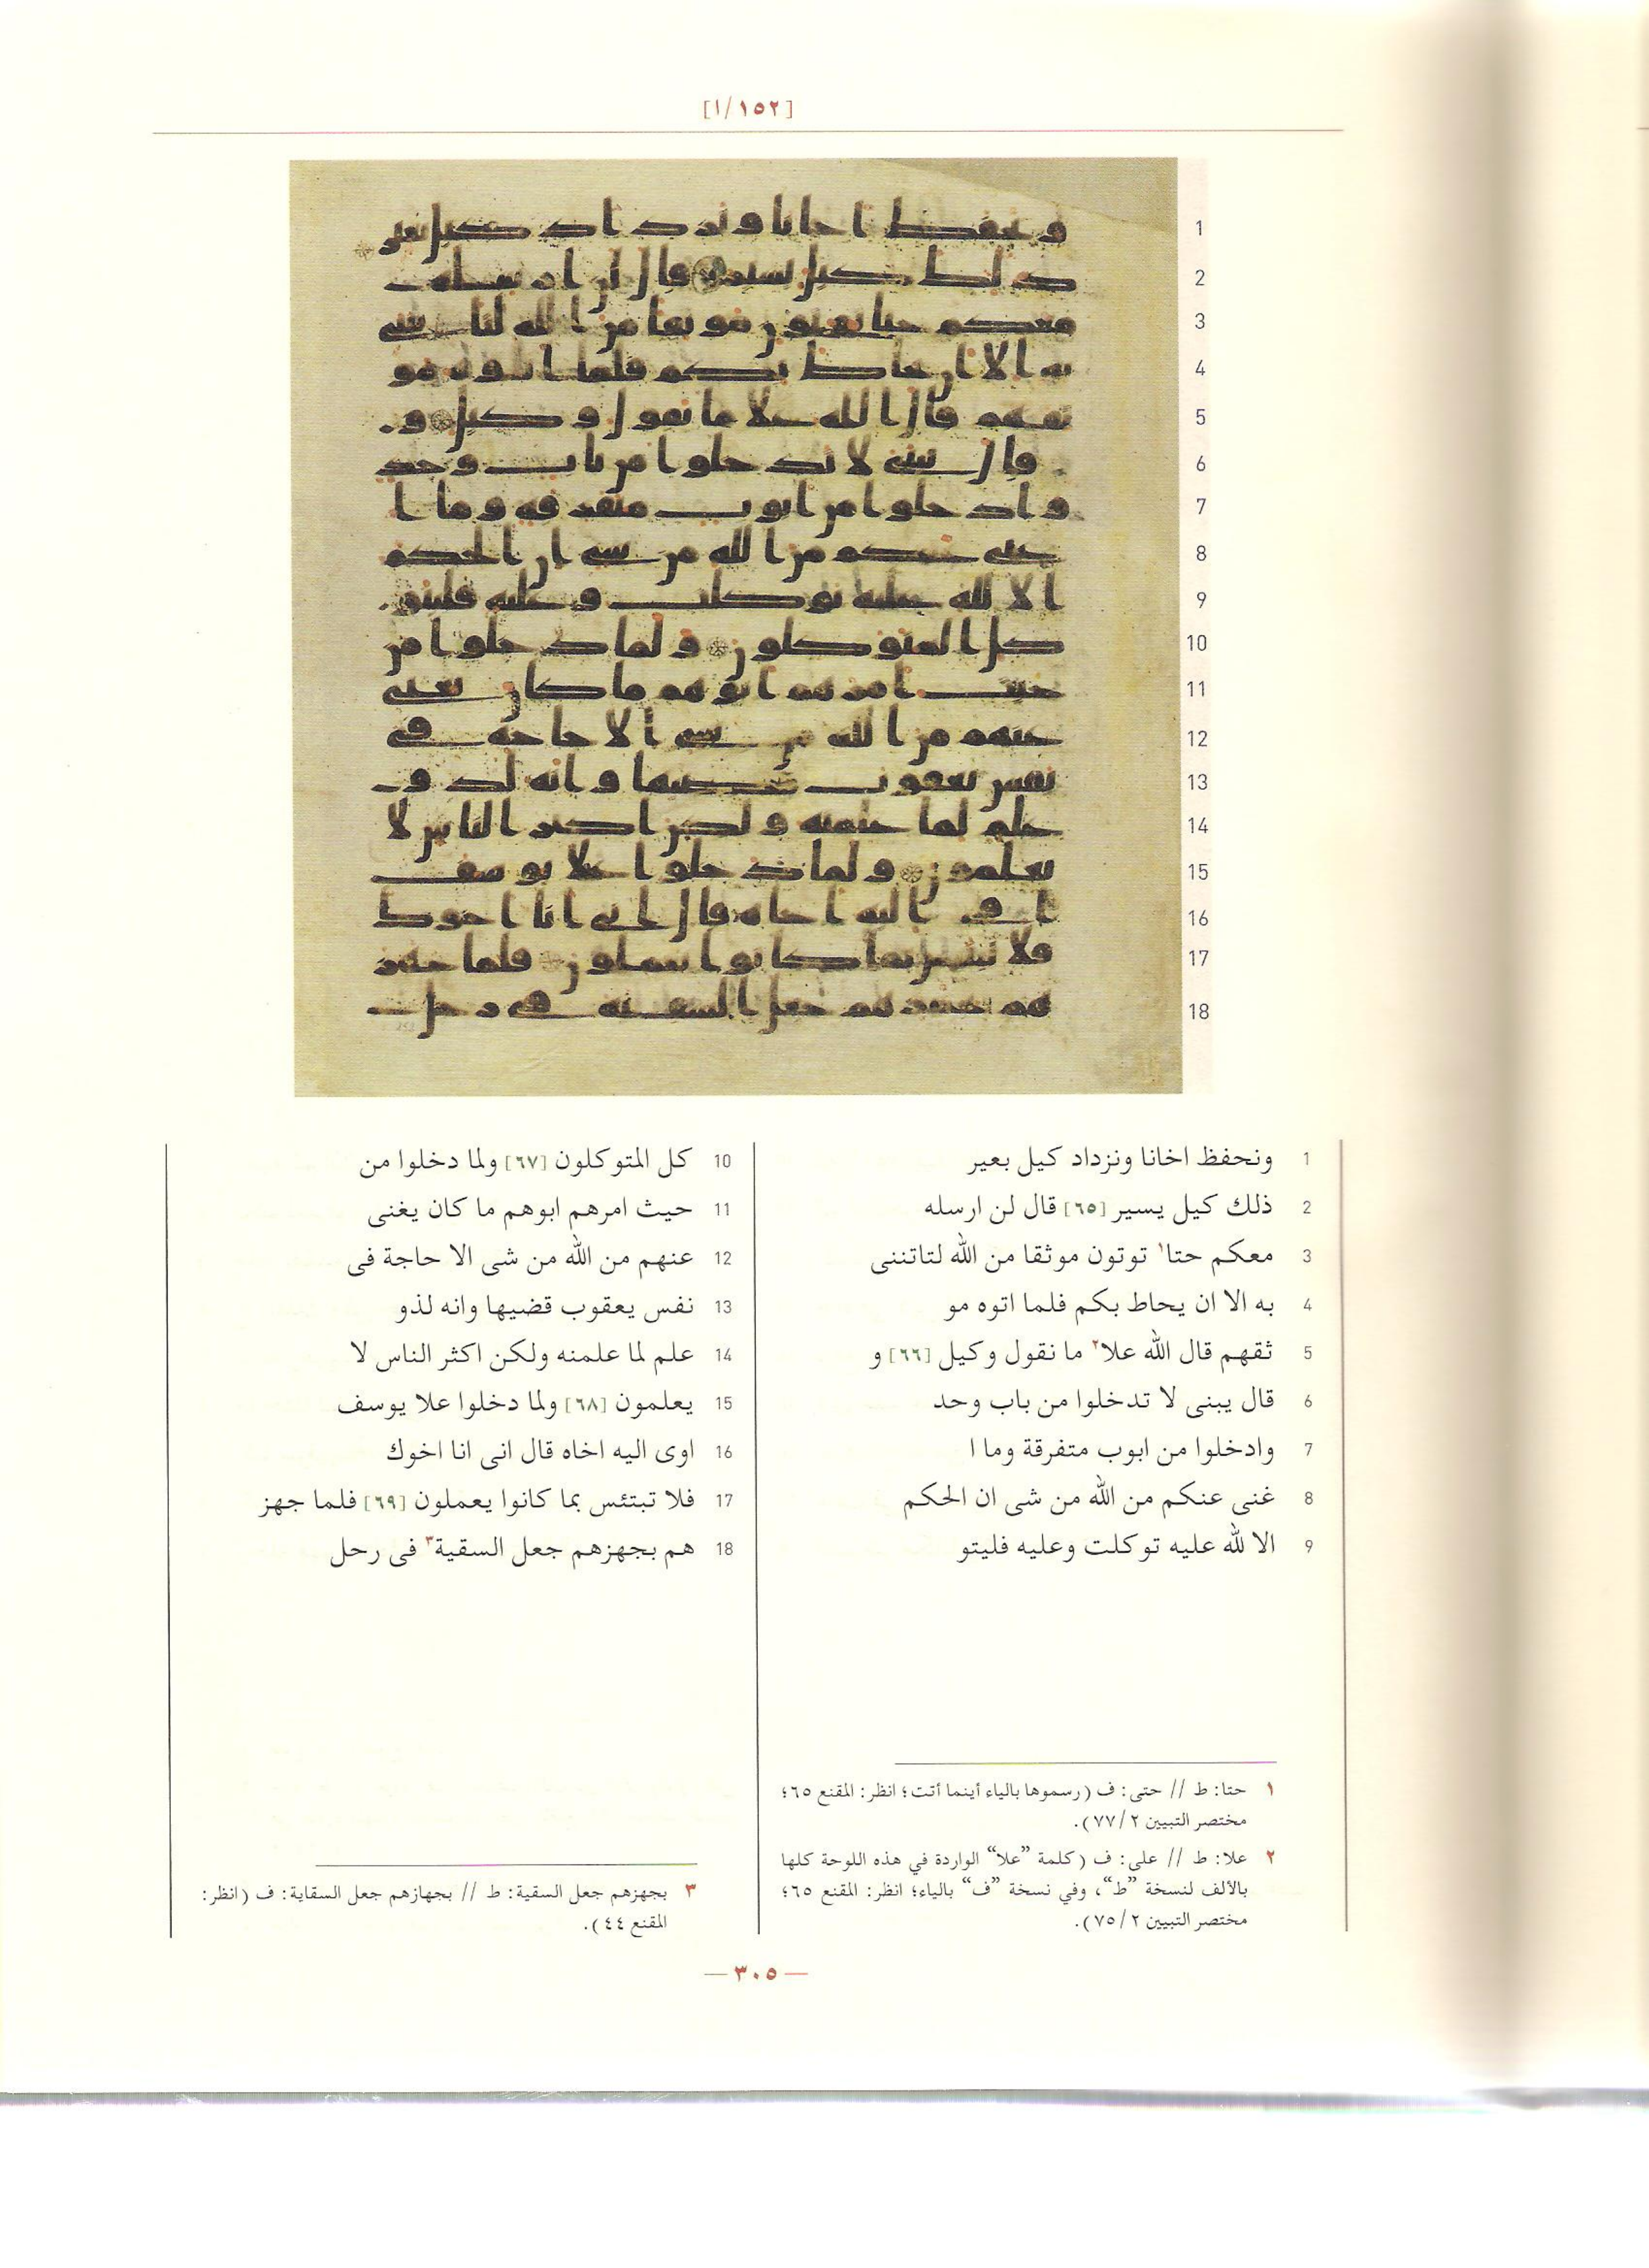 [١/١٥٢]
1 ونحفظ اخانا ونزداد كيل بعير
2 ذلك كيل يسير [٦٥] قال لن ارسله
3 معكم حتا١ توتون موثقا من الله لتاتننى
4 به الا ان يحاط بكم فلما اتوه مو
5 ثقهم قال الله علا٢ ما نقول وكيل [٦٦] و
6 قال يبنى لا تدخلوا من باب وحد
7 وادخلوا من ابوب متفرقة وما ا
8 غنى عنكم من الله من شى ان الحكم
9 الا لله عليه توكلت وعليه فليتو
10 كل المتوكلون [٦٧] ولما دخلوا من
11 حيث امرهم ابوهم ما كان يغنى
12 عنهم من الله من شى الا حاجة فى
13 نفس يعقوب قضيها وانه لذو
14 علم لما علمنه ولكن اكثر الناس لا
15 يعلمون [٦٨] ولما دخلوا علا يوسف
16 اوى اليه اخاه قال انى انا اخوك
17 فلا تبتئس بما كانوا يعملون [٦٩] فلما جهز
18 هم بجهزهم جعل السقية٣ فى رحل
١ حتا: ط // حتى: ف (رسموها بالياء أينما أتت؛ انظر: المقنع ٦٥؛
مختصر التبيين ٢/٧٧).
٢ علا: ط // على: ف (كلمة ”علا“ الواردة في هذه اللوحة كلها
بالألف لنسخة ”ط“، وفي نسخة ”ف“ بالياء؛ انظر: المقنع ٦٥؛
مختصر التبيين ٢/٧٥).
٣ بجهزهم جعل السقية: ط // بجهازهم جعل السقاية: ف (انظر:
المقنع ٤٤).
—٣٠٥—